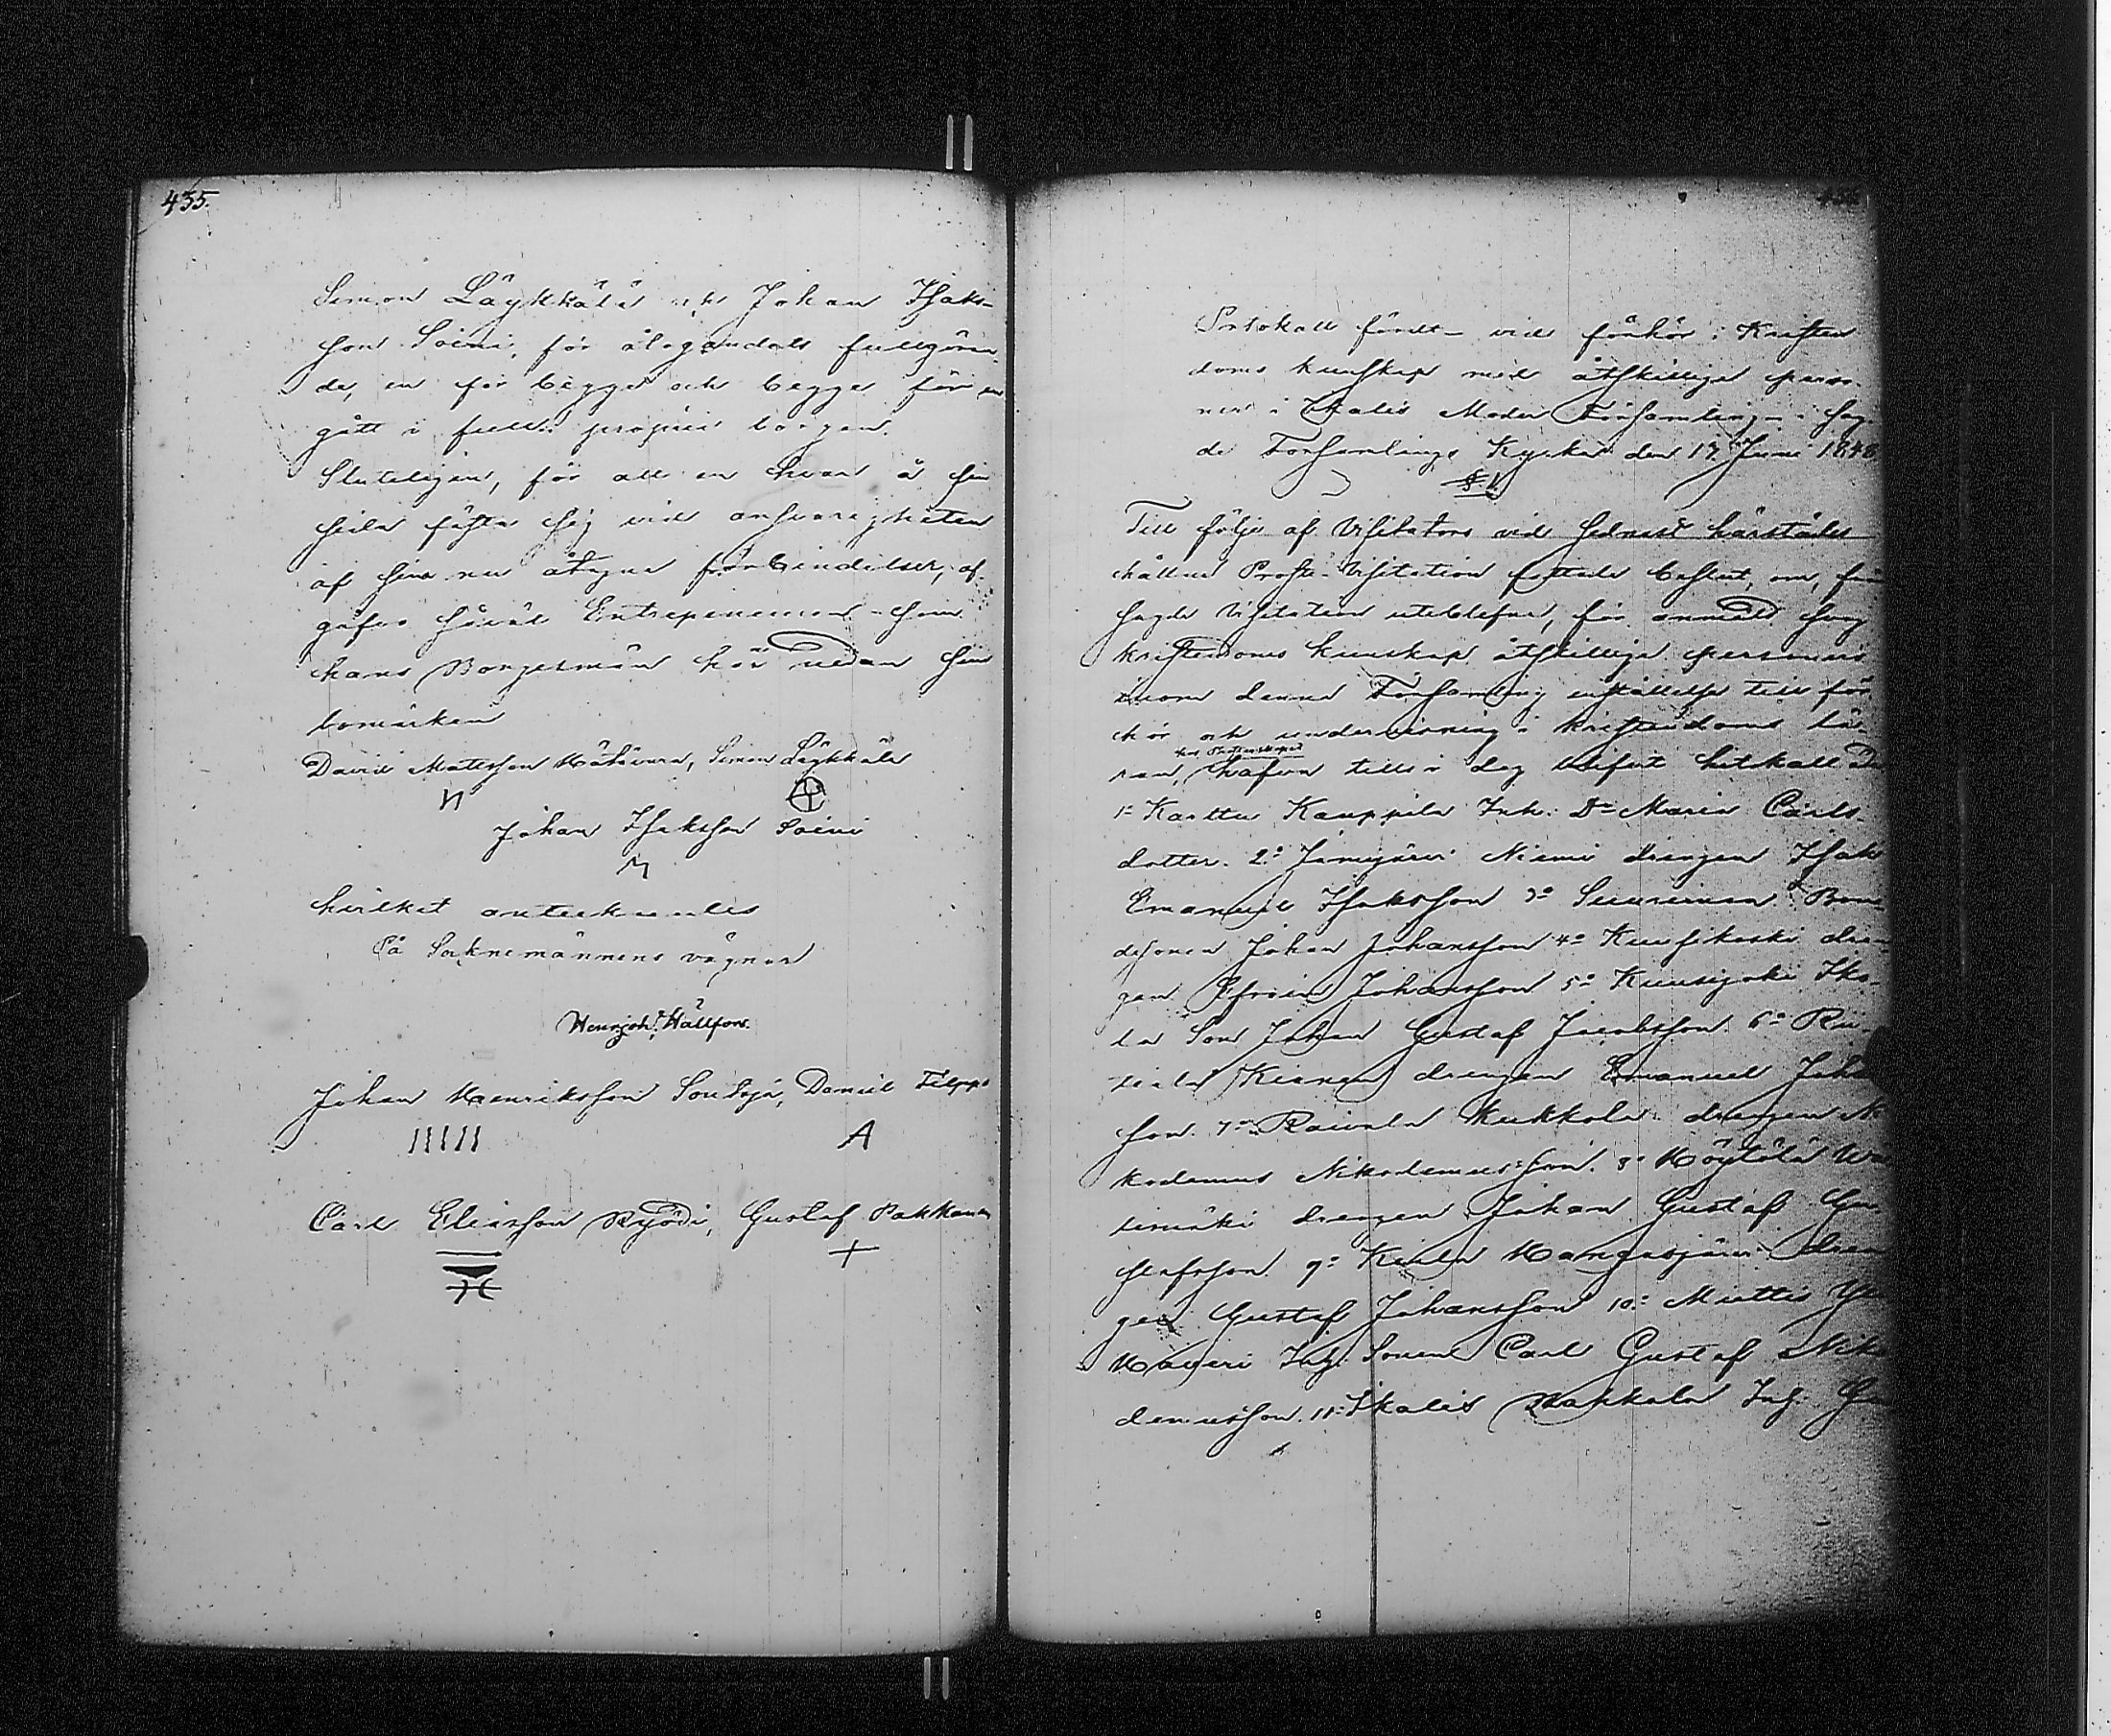 435.
Simon Läykkälä och Johan Isaks-
son Soini, för åliggandets fullgöran-
de, en för begge och begge för en
gått i full proprie borgen.
Sluteligen, för att en hvar å sin
sida fästa sig vid ansvarigheten
af sina nu åtagna förbindelser, af-
gåfvo såväl Entrepeneuren som
hans Borgesmän här nedan sina
bomärken
David Matsson Hätönen, Simon Läykkälä
Johan Isaksson Soini
hvilket antecknades
På Socknemännens vägnar
Henr: Joh: Hällfors.
Johan Henriksson Sontoja, Daniel Filppo
A
Carl Eliasson Ryödi, Gustaf Pakkanen
+
Protokoll fördt vid förhör i Kristen
doms kunskap med åtskillige perso-
ner i Ikalis Moder Församling i sag-
de Församlings Kyrka den 17 Juni 1848
§ 1.
Till följe af Visitators vid sednast härstädes
hållne Prosti-Visitation fattade beslut, om, från
sagde Visitation uteblefne, för anmäld svag
kristendoms kunskap åtskillige personers
inom denna Församling inställelse till för
hör och undervisning i kristendoms lä-
ran, hafva till i dag blifvit hitkallade
1o Karttu Kauppila Inh: Dr Maria Carls-
dotter. 2o Jämijärvi Niemi drengen Isak
Emanuel Isaksson 3o Bon-
desonen Johan Johansson 4o dren-
gen Efraim Johansson 5o
la Son Johan Gustaf Jacobsson. 6o
drengen Emanuel Johans
son. 7o Raivala Kukkola drengen Ni
kodemus Nikodemusson. 8o Höytölä
drengen Johan Gustaf Gu
stafsson. 9o Kiala Mangasjärvi dren
gen Gustaf Johansson 10o Muttis
Inh: Sonen Carl Gustaf Niko
demusson. 11o Ikalis Inh: